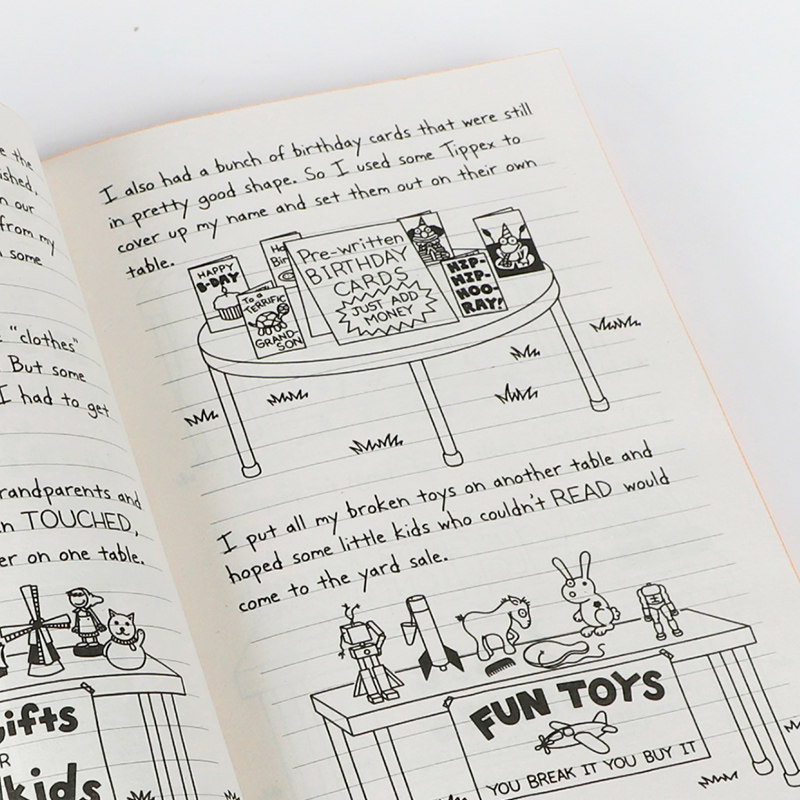 e the
ished.
n our
from my
n some
"clothes"
But some
I had to get
randparents and
n TOUCHED,
er on one table.
ifts
R
kids
I also had a bunch of birthday cards that were still
in pretty good shape. So I used some Tippex to
cover up my name and set them out on their own
table.
HAPPY
B-DAY
To a
TERRIFIC
GRAND-
SON
Ha
Bir
Pre-written
BIRTHDAY
CARDS
JUST ADD
MONEY
HIP-
HIP-
HOO-
RAY!
I put all my broken toys on another table and
hoped some little kids who couldn't READ would
come to the yard sale.
FUN TOYS
YOU BREAK IT YOU BUY IT